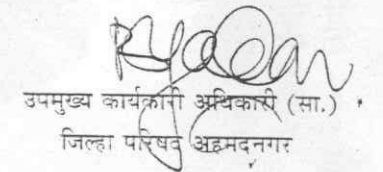 उपमुख्य कार्यकारी अधिकारी (सा.)
जिल्हा परिषद अहमदनगर